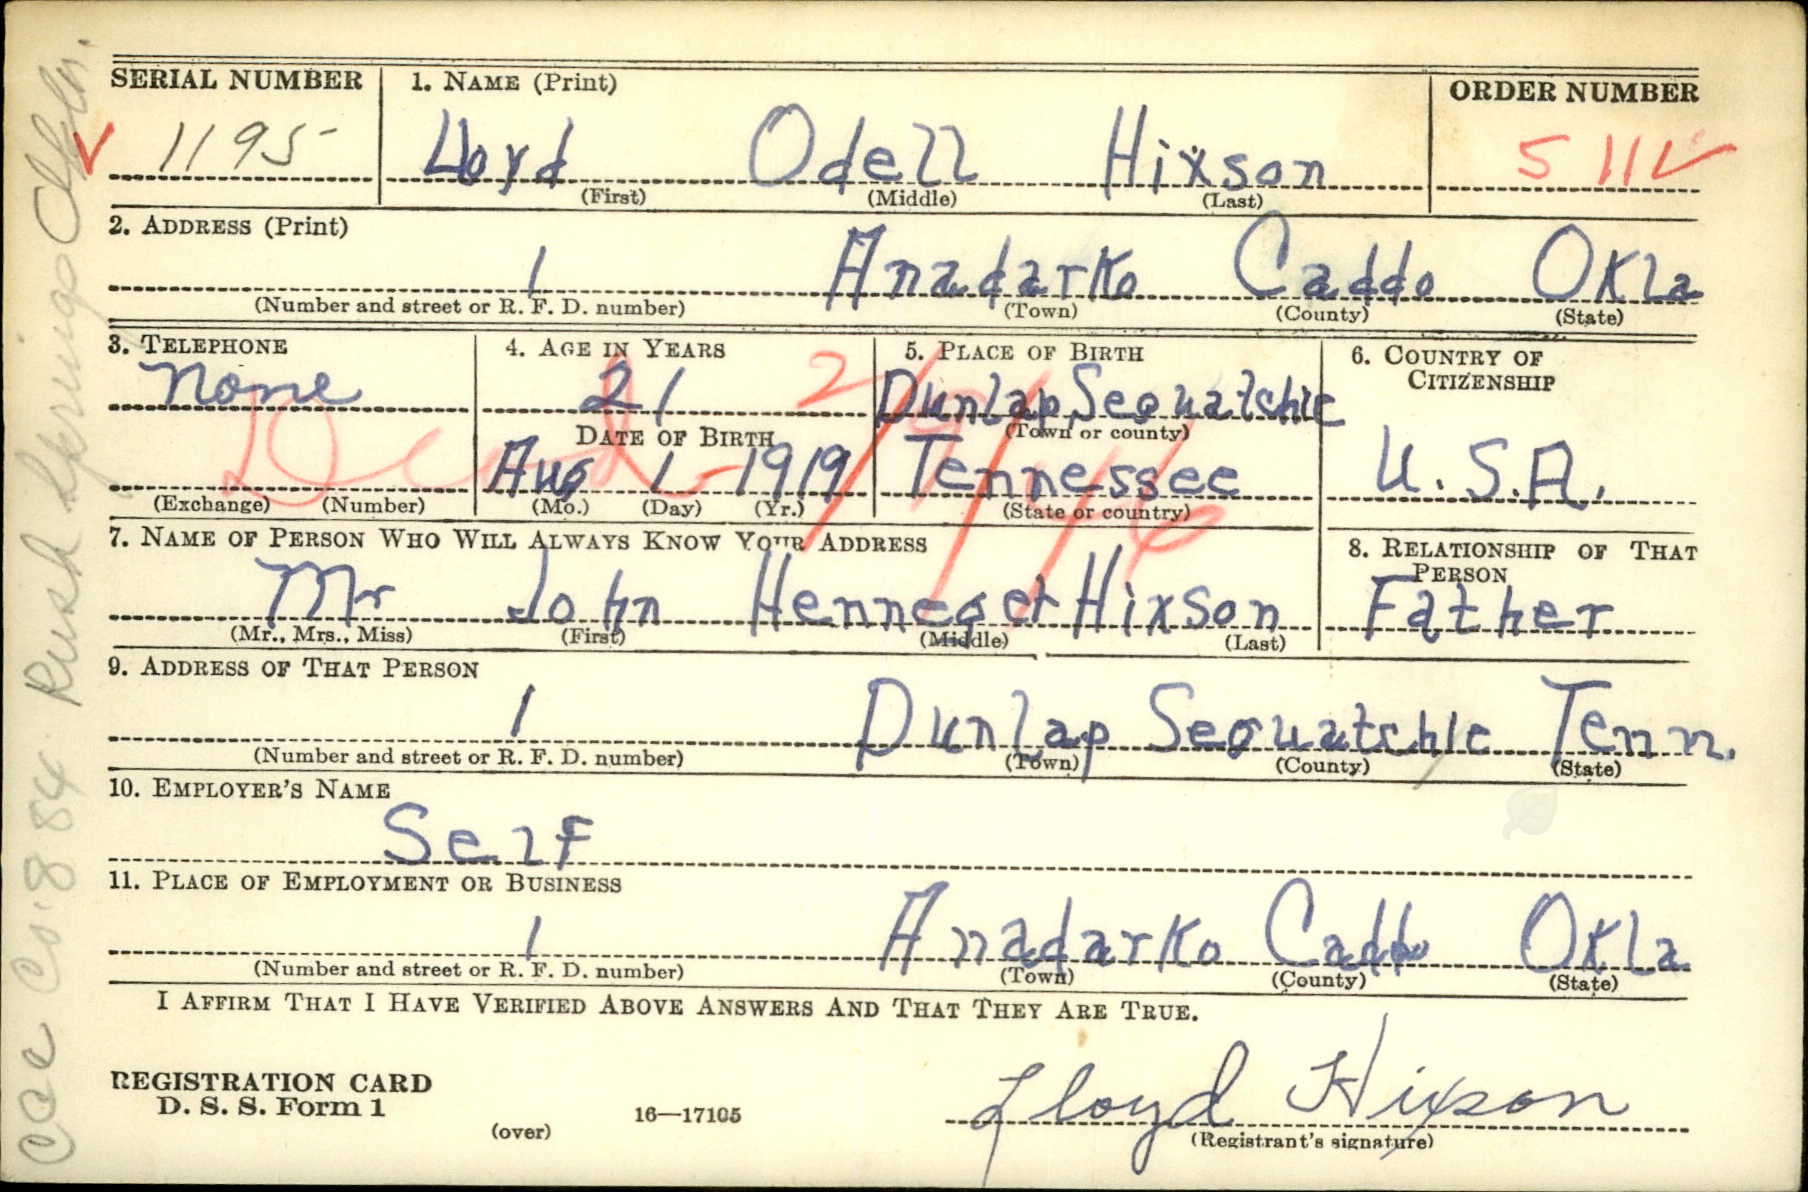 SERIAL NUMBER 1. NAME (Print) ORDER NUMBER
1195 Lloyd Odell Hixson 511
(First) (Middle) (Last)
2. ADDRESS (Print)
1 Anadarko Caddo Okla
(Number and street or R. F. D. number) (Town) (County) (State)
3. TELEPHONE 4. AGE IN YEARS 5. PLACE OF BIRTH 6. COUNTRY OF CITIZENSHIP
None 21 Dunlap, Sequatchie
(Town or county)
DATE OF BIRTH
Aug 1 - 1919 Tennessee U.S.A.
(Exchange) (Number) (Mo.) (Day) (Yr.) (State or country)
Dead 2/19/46
7. NAME OF PERSON WHO WILL ALWAYS KNOW YOUR ADDRESS 8. RELATIONSHIP OF THAT PERSON
Mr John Hixson Father
(Mr., Mrs., Miss) (First) (Middle) (Last)
9. ADDRESS OF THAT PERSON
1 Dunlap Sequatchie Tenn.
(Number and street or R. F. D. number) (Town) (County) (State)
10. EMPLOYER'S NAME
Self
11. PLACE OF EMPLOYMENT OR BUSINESS
1 Anadarko Caddo Okla
(Number and street or R. F. D. number) (Town) (County) (State)
I AFFIRM THAT I HAVE VERIFIED ABOVE ANSWERS AND THAT THEY ARE TRUE.
REGISTRATION CARD
D. S. S. Form 1
(over) 16—17105
Lloyd Hixson
(Registrant's signature)
CCC Co. 884 Rush Springs Okla.